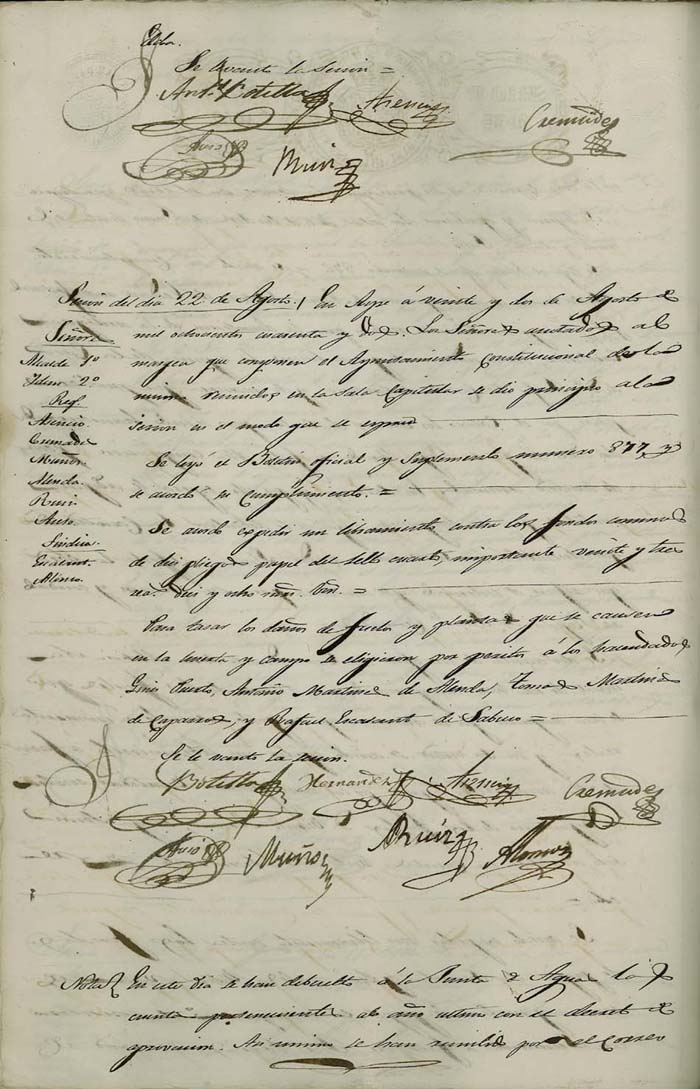 Se levantó la Sesion =
Ant.º Botella Asencio Cremades
Auso Ruiz
Sesion del dia 22 de Agosto. En Aspe á veinte y dos de Agosto de
Señores
mil ochocientos cuarenta y dos. Los Señores anotados al
Alcalde 1º
margen que componen el Ayuntamiento Constitucional de la
Idem 2º
misma reunidos en la Sala Capitular se dio principio a la
Reg.
sesion en el modo que se espresa
Asencio
Cremades
Se leyó el Boletin oficial y Suplemento numero 877, y
Muñoz
se acordó su cumplimiento. =
Almodo.
Ruiz
Se acordó expedir un libramiento contra los fondos comunes
Auso
de dies pliegos papel del sello cuarto, importante veinte y tres
Sindico
Alonso
r.s dies y ocho mrs. vn. =
Para tasar los daños de frutos y plantas que se causen
en la huerta y campo se eligieron por peritos á los hacendados
Gines Puerto, Antonio Martinez de Alenda, Tomas Martinez
de Caparros, y Rafael Escalant de Sabuco =
Se levanto la sesion.
Botella Hernandez Asencio Cremades
Auso Muñoz Ruiz Alonso
Nota En este dia se han debuelto á la Junta de Aguas las
cuentas pertenecientes al año ultimo con el decreto de
aprovacion. Asi mismo se han remitido por el Correo